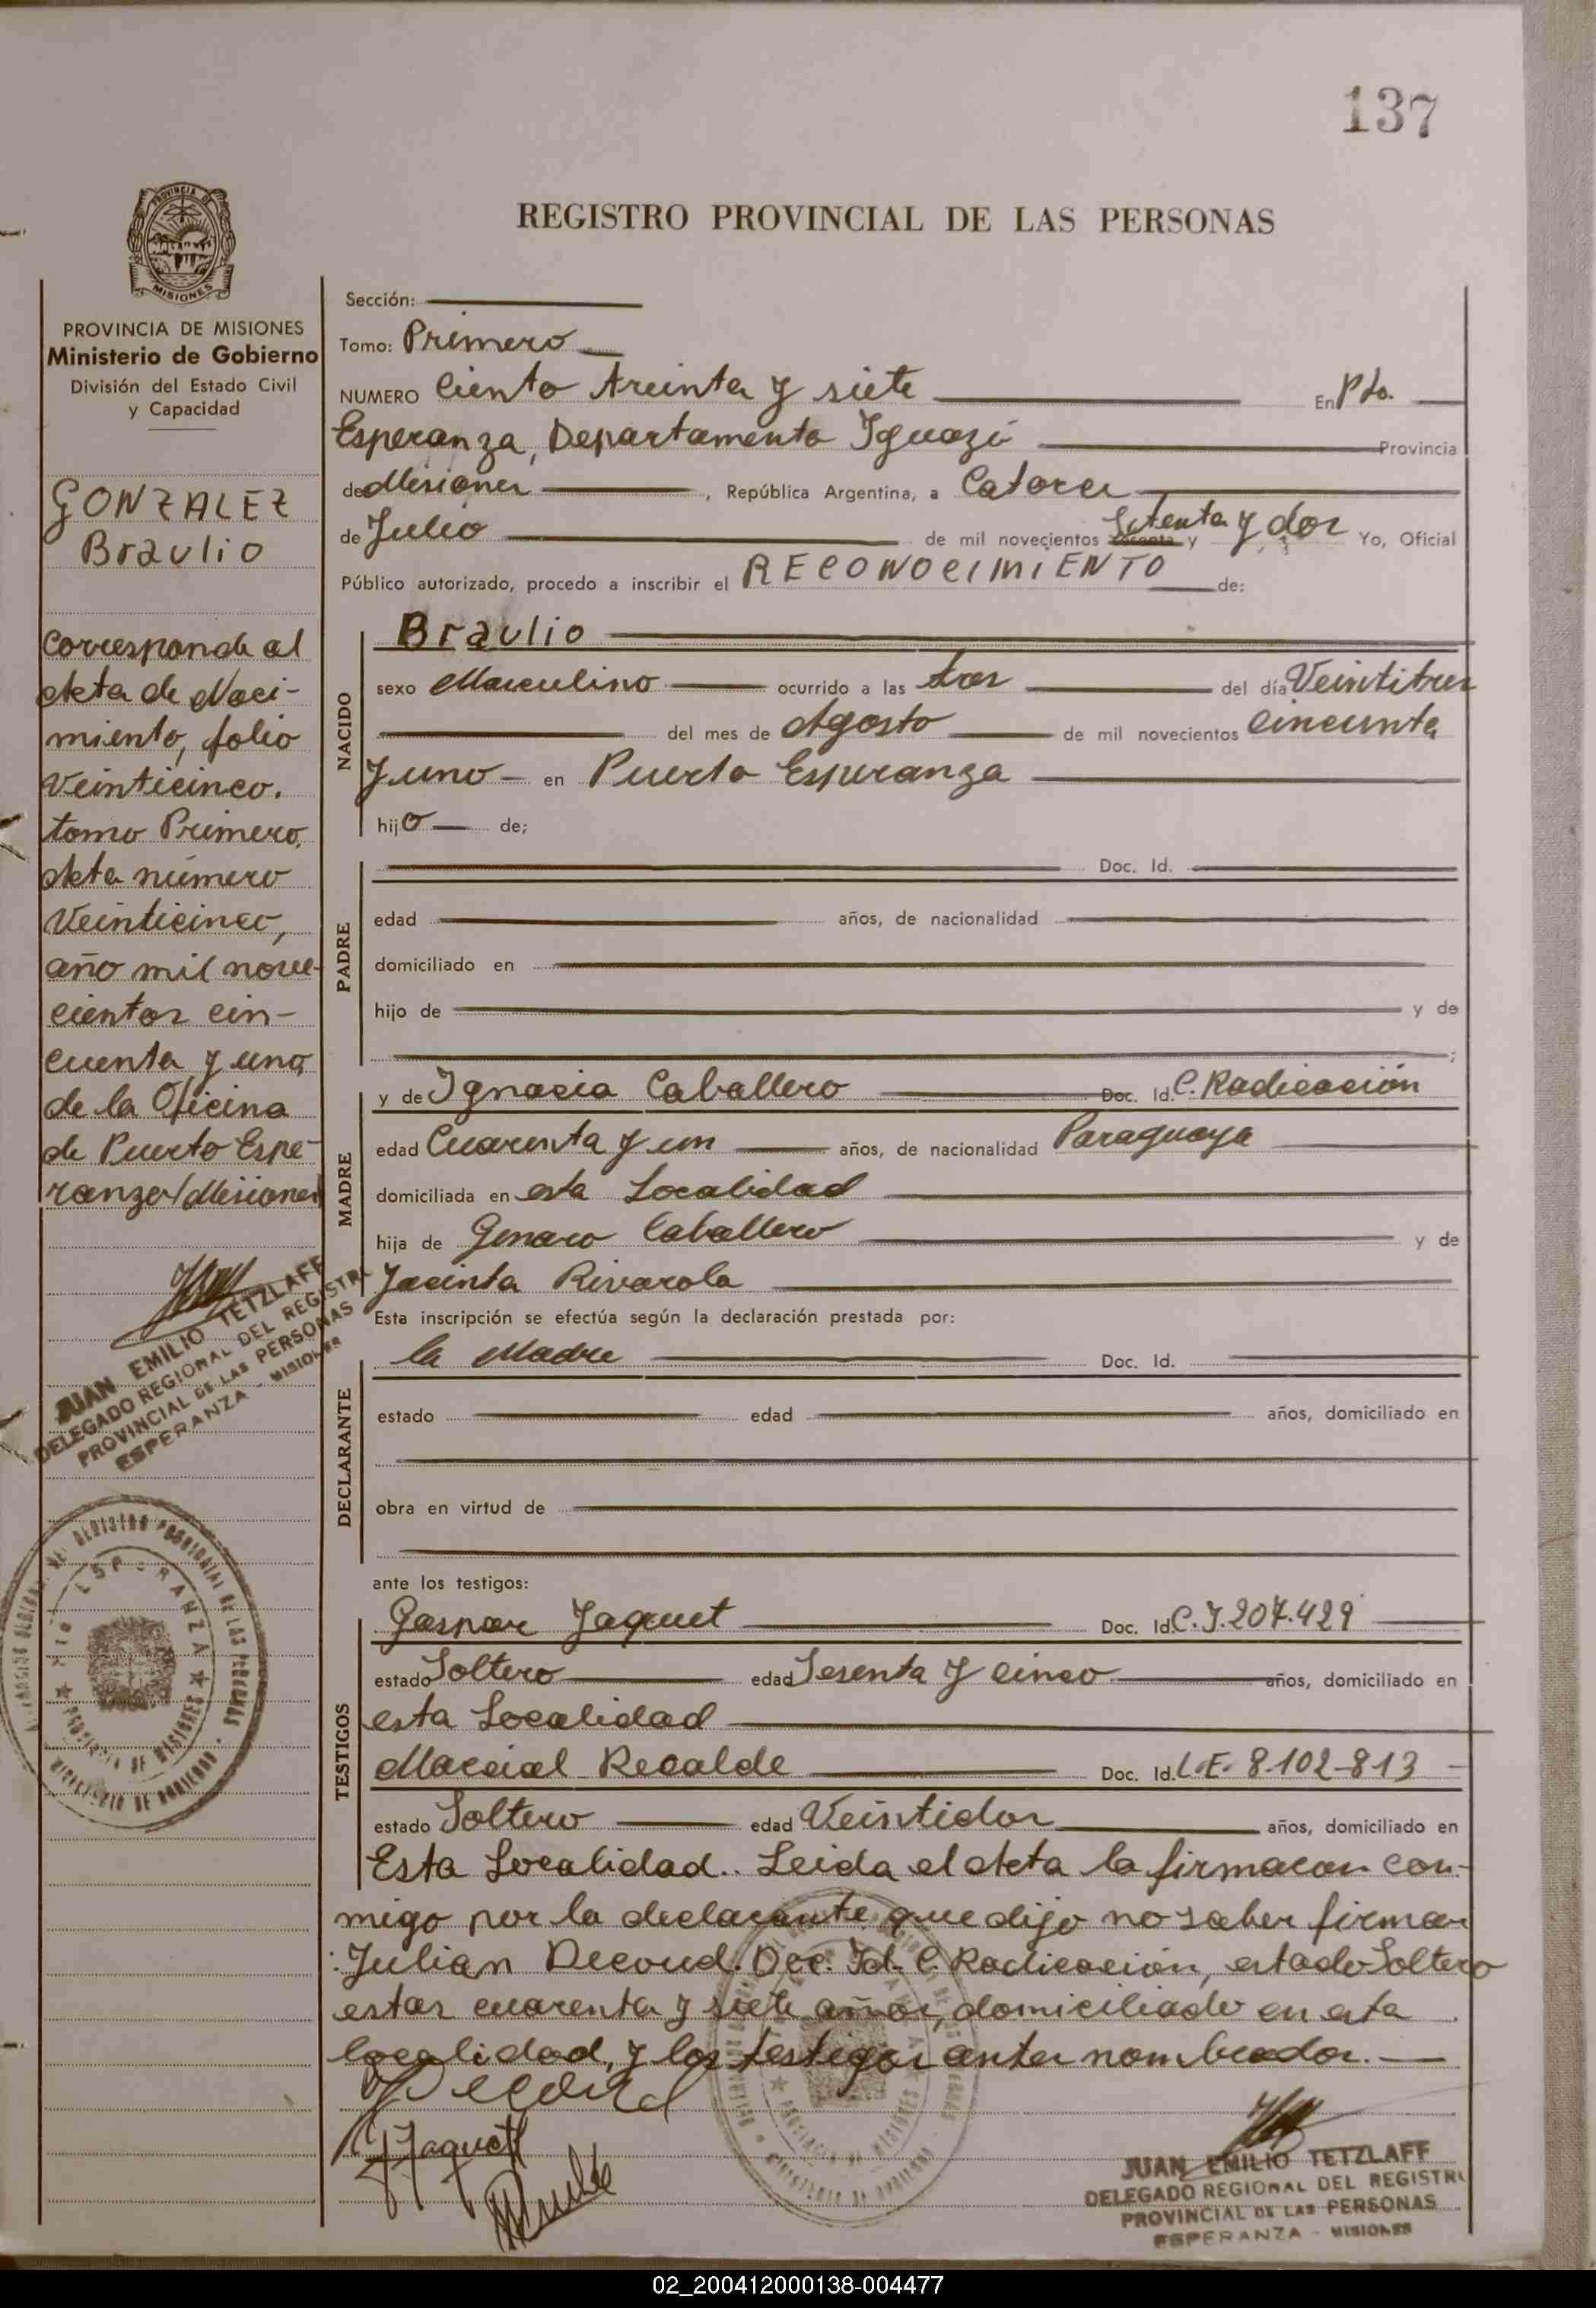 137
REGISTRO PROVINCIAL DE LAS PERSONAS
PROVINCIA DE
MISIONES
PROVINCIA DE MISIONES
Ministerio de Gobierno
División del Estado Civil
y Capacidad
GONZALEZ
Braulio
Corresponde al
Acta de Naci-
miento, folio
Veinticinco.
tomo Primero,
Acta número
Veinticinco,
año mil nove-
cientos cin-
cuenta y uno,
de la Oficina
de Puerto Espe-
ranza/Misiones
JUAN EMILIO TETZLAFF
DELEGADO REGIONAL DEL REGISTRO
PROVINCIAL DE LAS PERSONAS
ESPERANZA - MISIONES
Sección:
Tomo: Primero
NUMERO Ciento treinta y siete En Pto.
Esperanza, Departamento Iguazú Provincia
de Misiones, República Argentina, a Catorce
de Julio de mil novecientos sesenta y Setenta y dos Yo, Oficial
Público autorizado, procedo a inscribir el RECONOCIMIENTO de:
NACIDO
Braulio
sexo Masculino ocurrido a las tres del día Veintitres
del mes de Agosto de mil novecientos Cincuenta
y uno en Puerto Esperanza
hijo de;
PADRE
Doc. Id.
edad años, de nacionalidad
domiciliado en
hijo de y de
;
MADRE
y de Ignacia Caballero Doc. Id. C. Radicación
edad Cuarenta y un años, de nacionalidad Paraguaya
domiciliada en esta Localidad
hija de Genaro Caballero y de
Jacinta Rivarola
Esta inscripción se efectúa según la declaración prestada por:
DECLARANTE
la Madre Doc. Id.
estado edad años, domiciliado en
obra en virtud de
ante los testigos:
TESTIGOS
Gaspar Jaquet Doc. Id. C.I. 207.429
estado Soltero edad Sesenta y cinco años, domiciliado en
esta Localidad
Marcial Recalde Doc. Id. L.E. 8.102-813
estado Soltero edad Veintidos años, domiciliado en
Esta Localidad.. Leida el Acta la firmaron con-
migo por la declarante que dijo no saber firmar
: Julian Decoud. Doc. Id. C. Radicación, estado Soltero
estas cuarenta y siete años, domiciliado en esta
localidad, y los testigos antes nombrados.
Decoud
Jaquet
JUAN EMILIO TETZLAFF
DELEGADO REGIONAL DEL REGISTRO
PROVINCIAL DE LAS PERSONAS
ESPERANZA - MISIONES
02_200412000138-004477